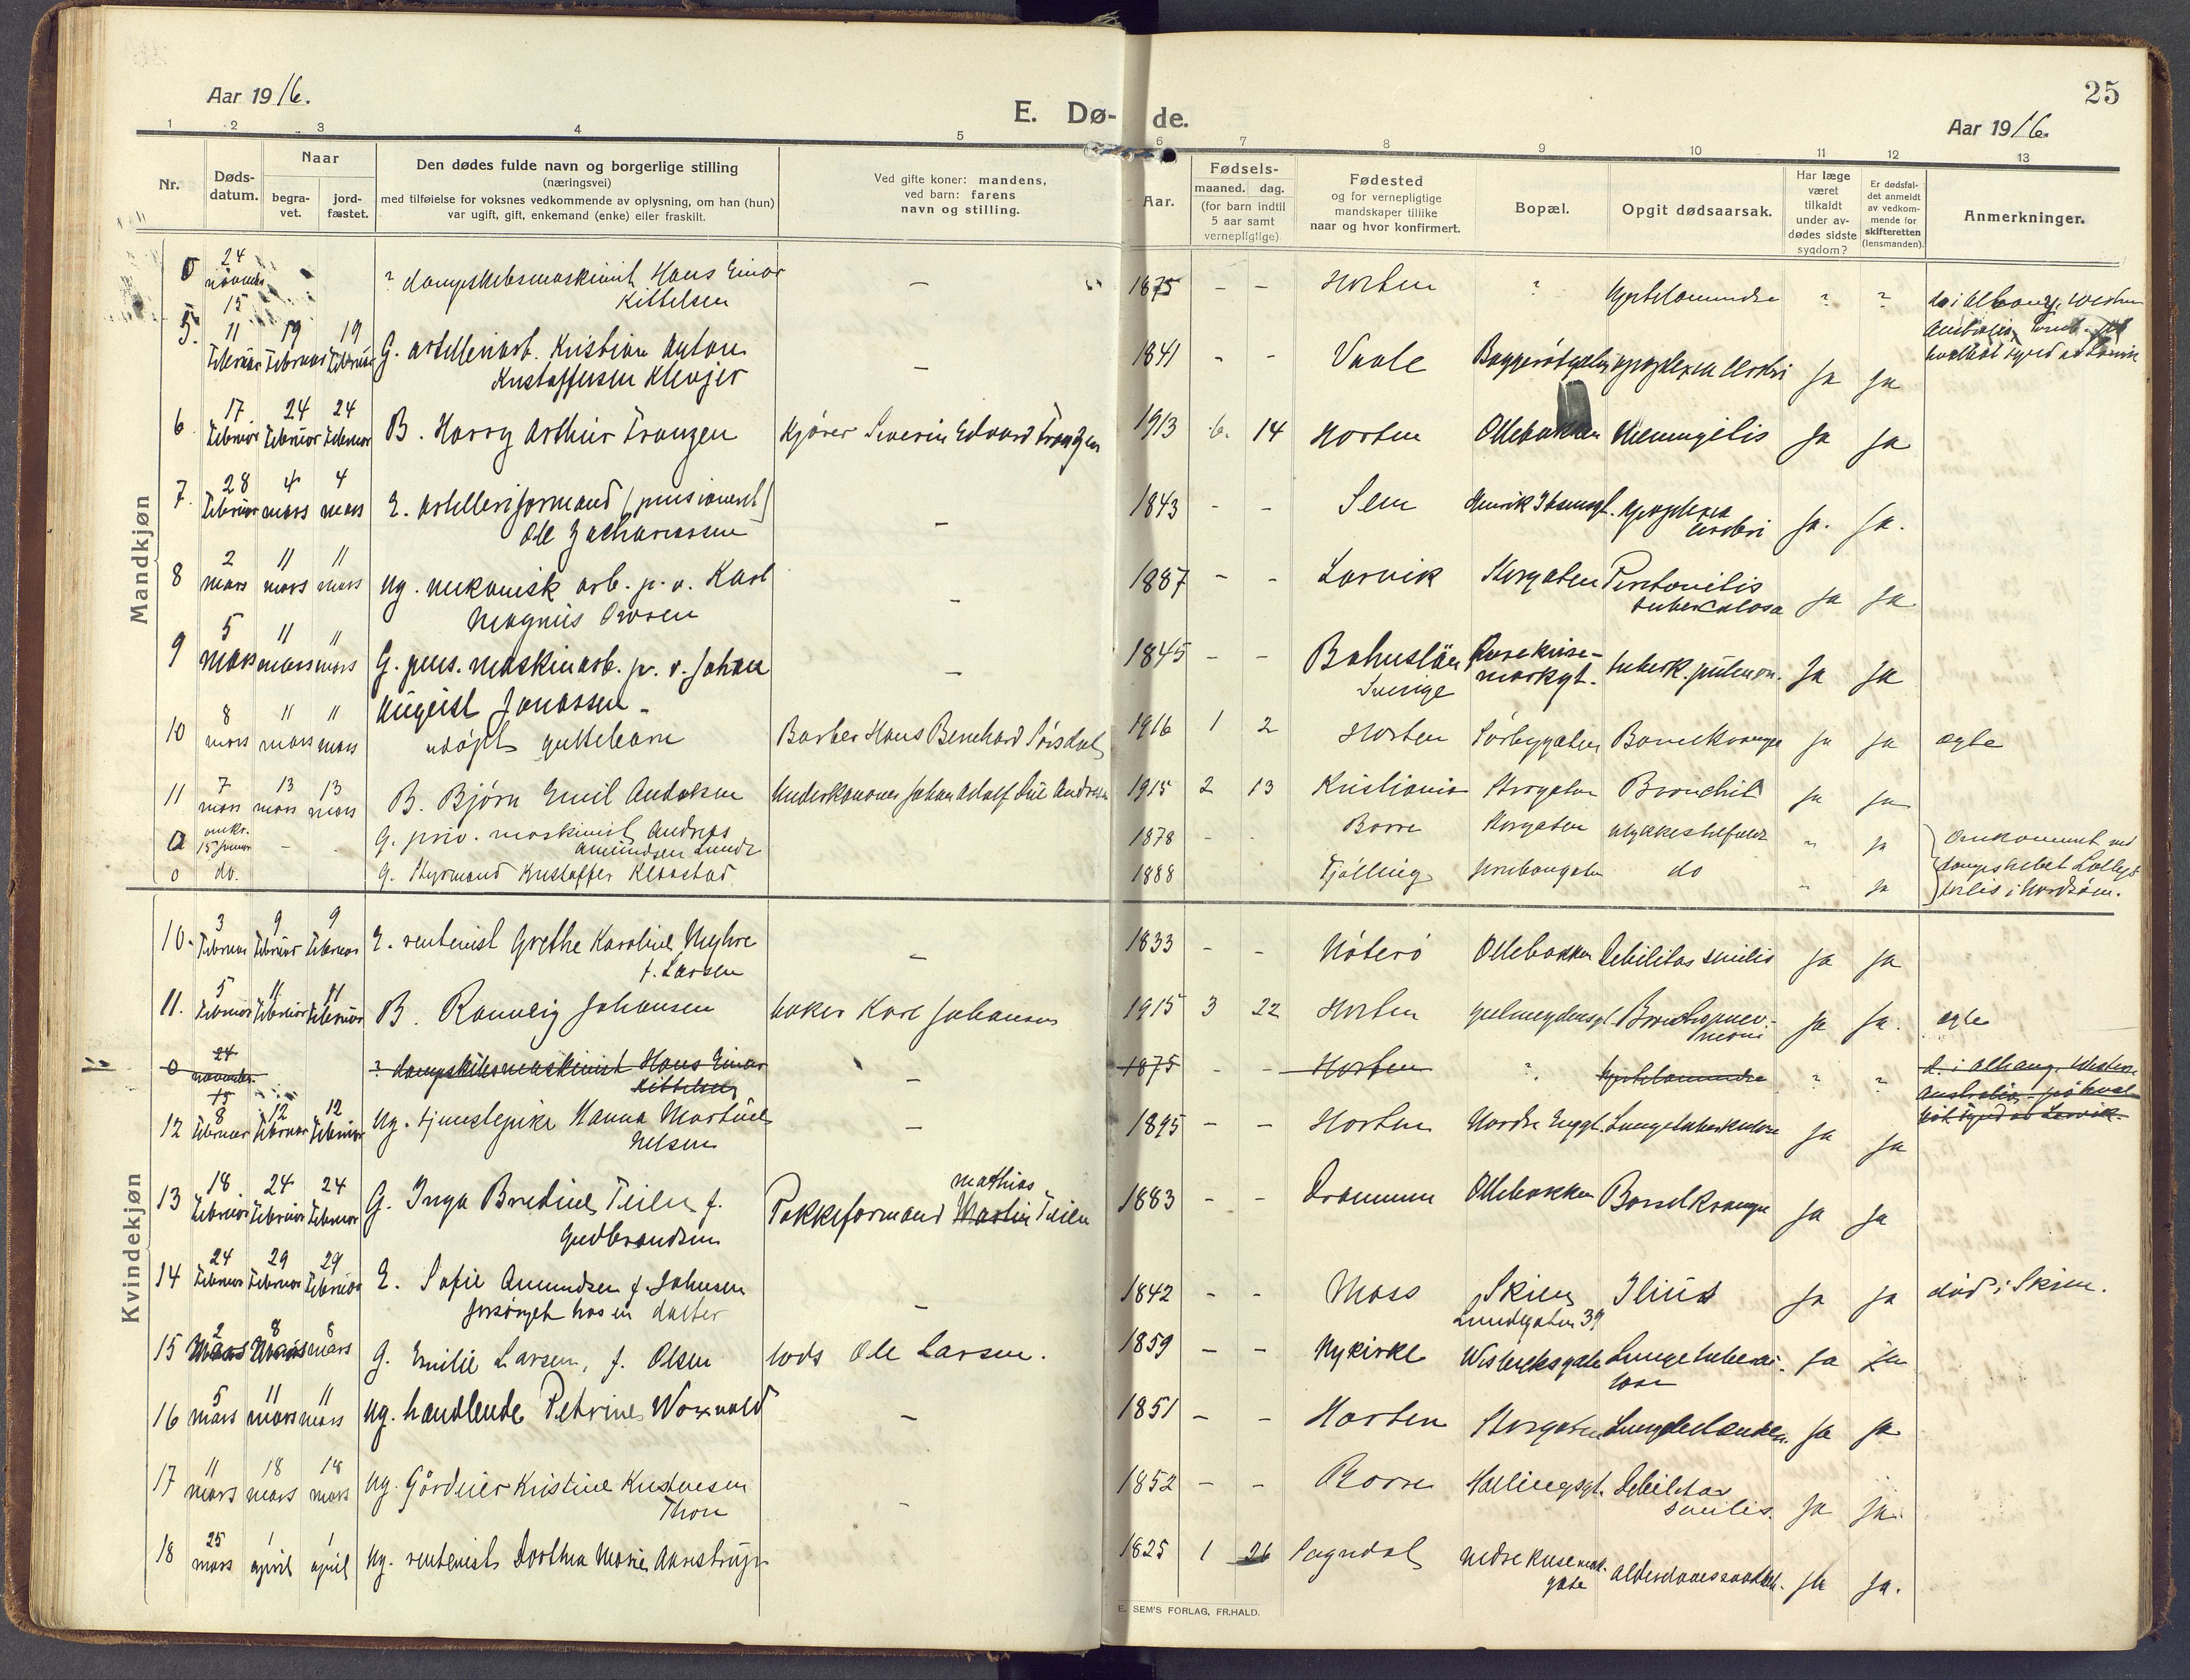 25
Aar 1916.
E. Dø- de.
Aar 1916.
1 2 3 4 5 6 7 8 9 10 11 12 13
Nr.
Døds-
datum.
Naar
begra-
vet.
jord-
fæstet.
Den dødes fulde navn og borgerlige stilling
(næringsvei)
med tilføielse for voksnes vedkommende av oplysning, om han (hun)
var ugift, gift, enkemand (enke) eller fraskilt.
Ved gifte koner: mandens,
ved barn: farens
navn og stilling.
Aar.
Fødsels-
maaned. dag.
(for barn indtil
5 aar samt
vernepligtige)
Fødested
og for vernepligtige
mandskaper tillike
naar og hvor konfirmert.
Bopæl.
Opgit dødsaarsak.
Har læge
været
tilkaldt
under av-
dødes sidste
sygdom?
Er dødsfal-
det anmeldt
av vedkom-
mende for
skifteretten
(lensmanden).
Anmerkninger.
Mandkjøn
0 24 november 15 ? dampskibsmaskinist Hans Einar Kittelsen — 1875 - - Horten ? ? ? d. i Albany, Western Australia,
5. 11 Februar 19 Februar 19 Februar G. artilleriarb. Kristian Anton Kristoffersen Klevjer — 1841 - - Vaale apoplexia cerebri Ja Ja
6 17 Februar 24 Februar 24 Februar B. Harry Arthur Franzen Kjører Severin Edvard Franzen 1913 6. 14 Horten Ollebakken Meningitis Ja Ja
7. 28 Februar 4 mars 4 mars E. artilleriformand (pensionert) Ole Zachariassen — 1843 - - Sem Henrik Ibsensgt. Apoplexia cerebri Ja. Ja.
8 2 mars 11 mars 11 mars Ug. mekanisk arb. p. v. Karl Magnus — 1887 - - Larvik Storgaten Peritonitis tuberculosa Ja Ja
9 5 mars 11 mars 11 mars G. pens. maskinarb. p. v. Johan August Jonassen — 1845 - - Bohuslän Sverige tuberk. pulmon. Ja Ja
10 8 mars 11 mars 11 mars udøpt guttebarn Barber Hans Bernhard Sørsdal 1916 1 2 Horten Sørbygaten Ja Ja ægte
11 7 mars 13 mars 13 mars B. Bjørn Emil Andersen 1915 2 13 Kristiania Storgaten Bronchit Ja Ja
0 omkr. 15 januar - - G. priv. maskinist Andreas Amundsen Lunde 1878 - - Borre Storgaten ulykkestilfælde " Ja Omkommet ved
0 do. G. Styrmand Kristoffer Klaastad 1888 Tjølling Jernbangaten do " Ja dampskibet forlis i Nordsjøen.
Kvindekjøn
10. 3 Februar 9 Februar 9 Februar E. rentenist Grethe Karoline Myhre f. Larsen — 1833 - - Nøterø Ollebakken Debilitas senilis Ja Ja
11. 5 Februar 11 Februar 11 Februar B. Ranveig Johansen baker Karl Johansen 1915 3 22 Horten Bronchopnevmoni Ja Ja. ægte
0 24 november 15 ? dampskibsmaskinist Hans Einar Kittelsen — 1875 - - Horten " " " d. i Albany, Western Australia - på hval
12 8 Februar 12 Februar 12 Februar Ug. tjenestepike Hanna Martine Nilsen — 1895 - - Horten Nordre Enggt. Lungetuberkulose Ja Ja
13 18. Februar 24 Februar 24 Februar G. Inga Bredine Teien f. Gudbrandsen Pakkeformand Martin Mathias Teien 1883 - - Drammen Ollebakken Ja Ja
14 24 Februar 29 Februar 29 Februar E. Sofie Amundsen f. Johnsen forsørget hos en datter — 1842 - - Moss Skien Lundegaten 39 Ilius Ja Ja død i Skien.
15 2 Mars 8 Mars 8 mars G. Emilie Larsen, f. Olsen lods Ole Larsen. 1859 - - Nykirke Ja Ja
16 5 mars 11 mars 11 mars Ug. handlende Petrine Woxvold — 1851 - - Horten Storgaten Ja Ja
17 11 mars 18 mars 18 mars Ug. Kristine Thon — 1852 - - Borre Debilitas senilis. Ja Ja.
18 25 mars 1 april 1 april Ug. rentenist Dorthea Marie Aarestrup 1825 1 26 Sogndal Nedre gate Ja Ja.
E. SEM'S FORLAG, FR.HALD.